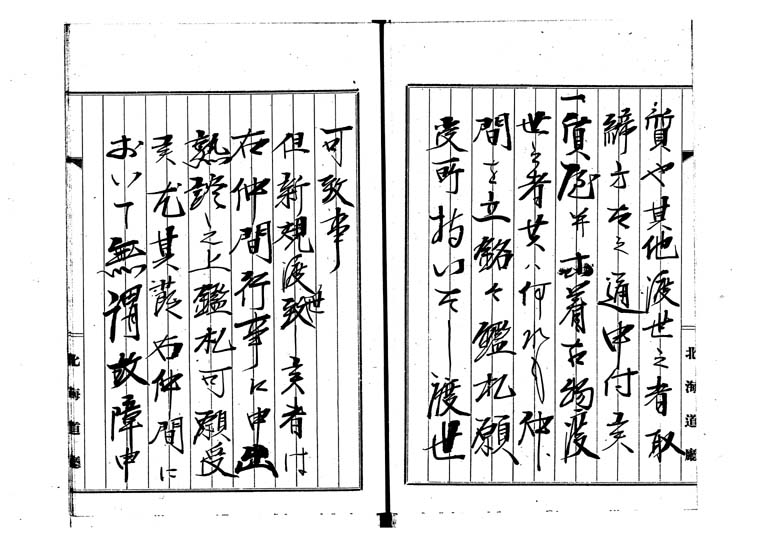 質や其他渡世之者取
締方左之通申付候
一質屋并古着古物渡
世之者共ハ何れも仲
間を立銘々鑑札願
受所持いたし渡世
可致事
但新規渡世致し候者は
右仲間行事に申出
熟談之上鑑札可願受
候尤其議右仲間に
おいて無謂故障申
北海道廳
北海道廳